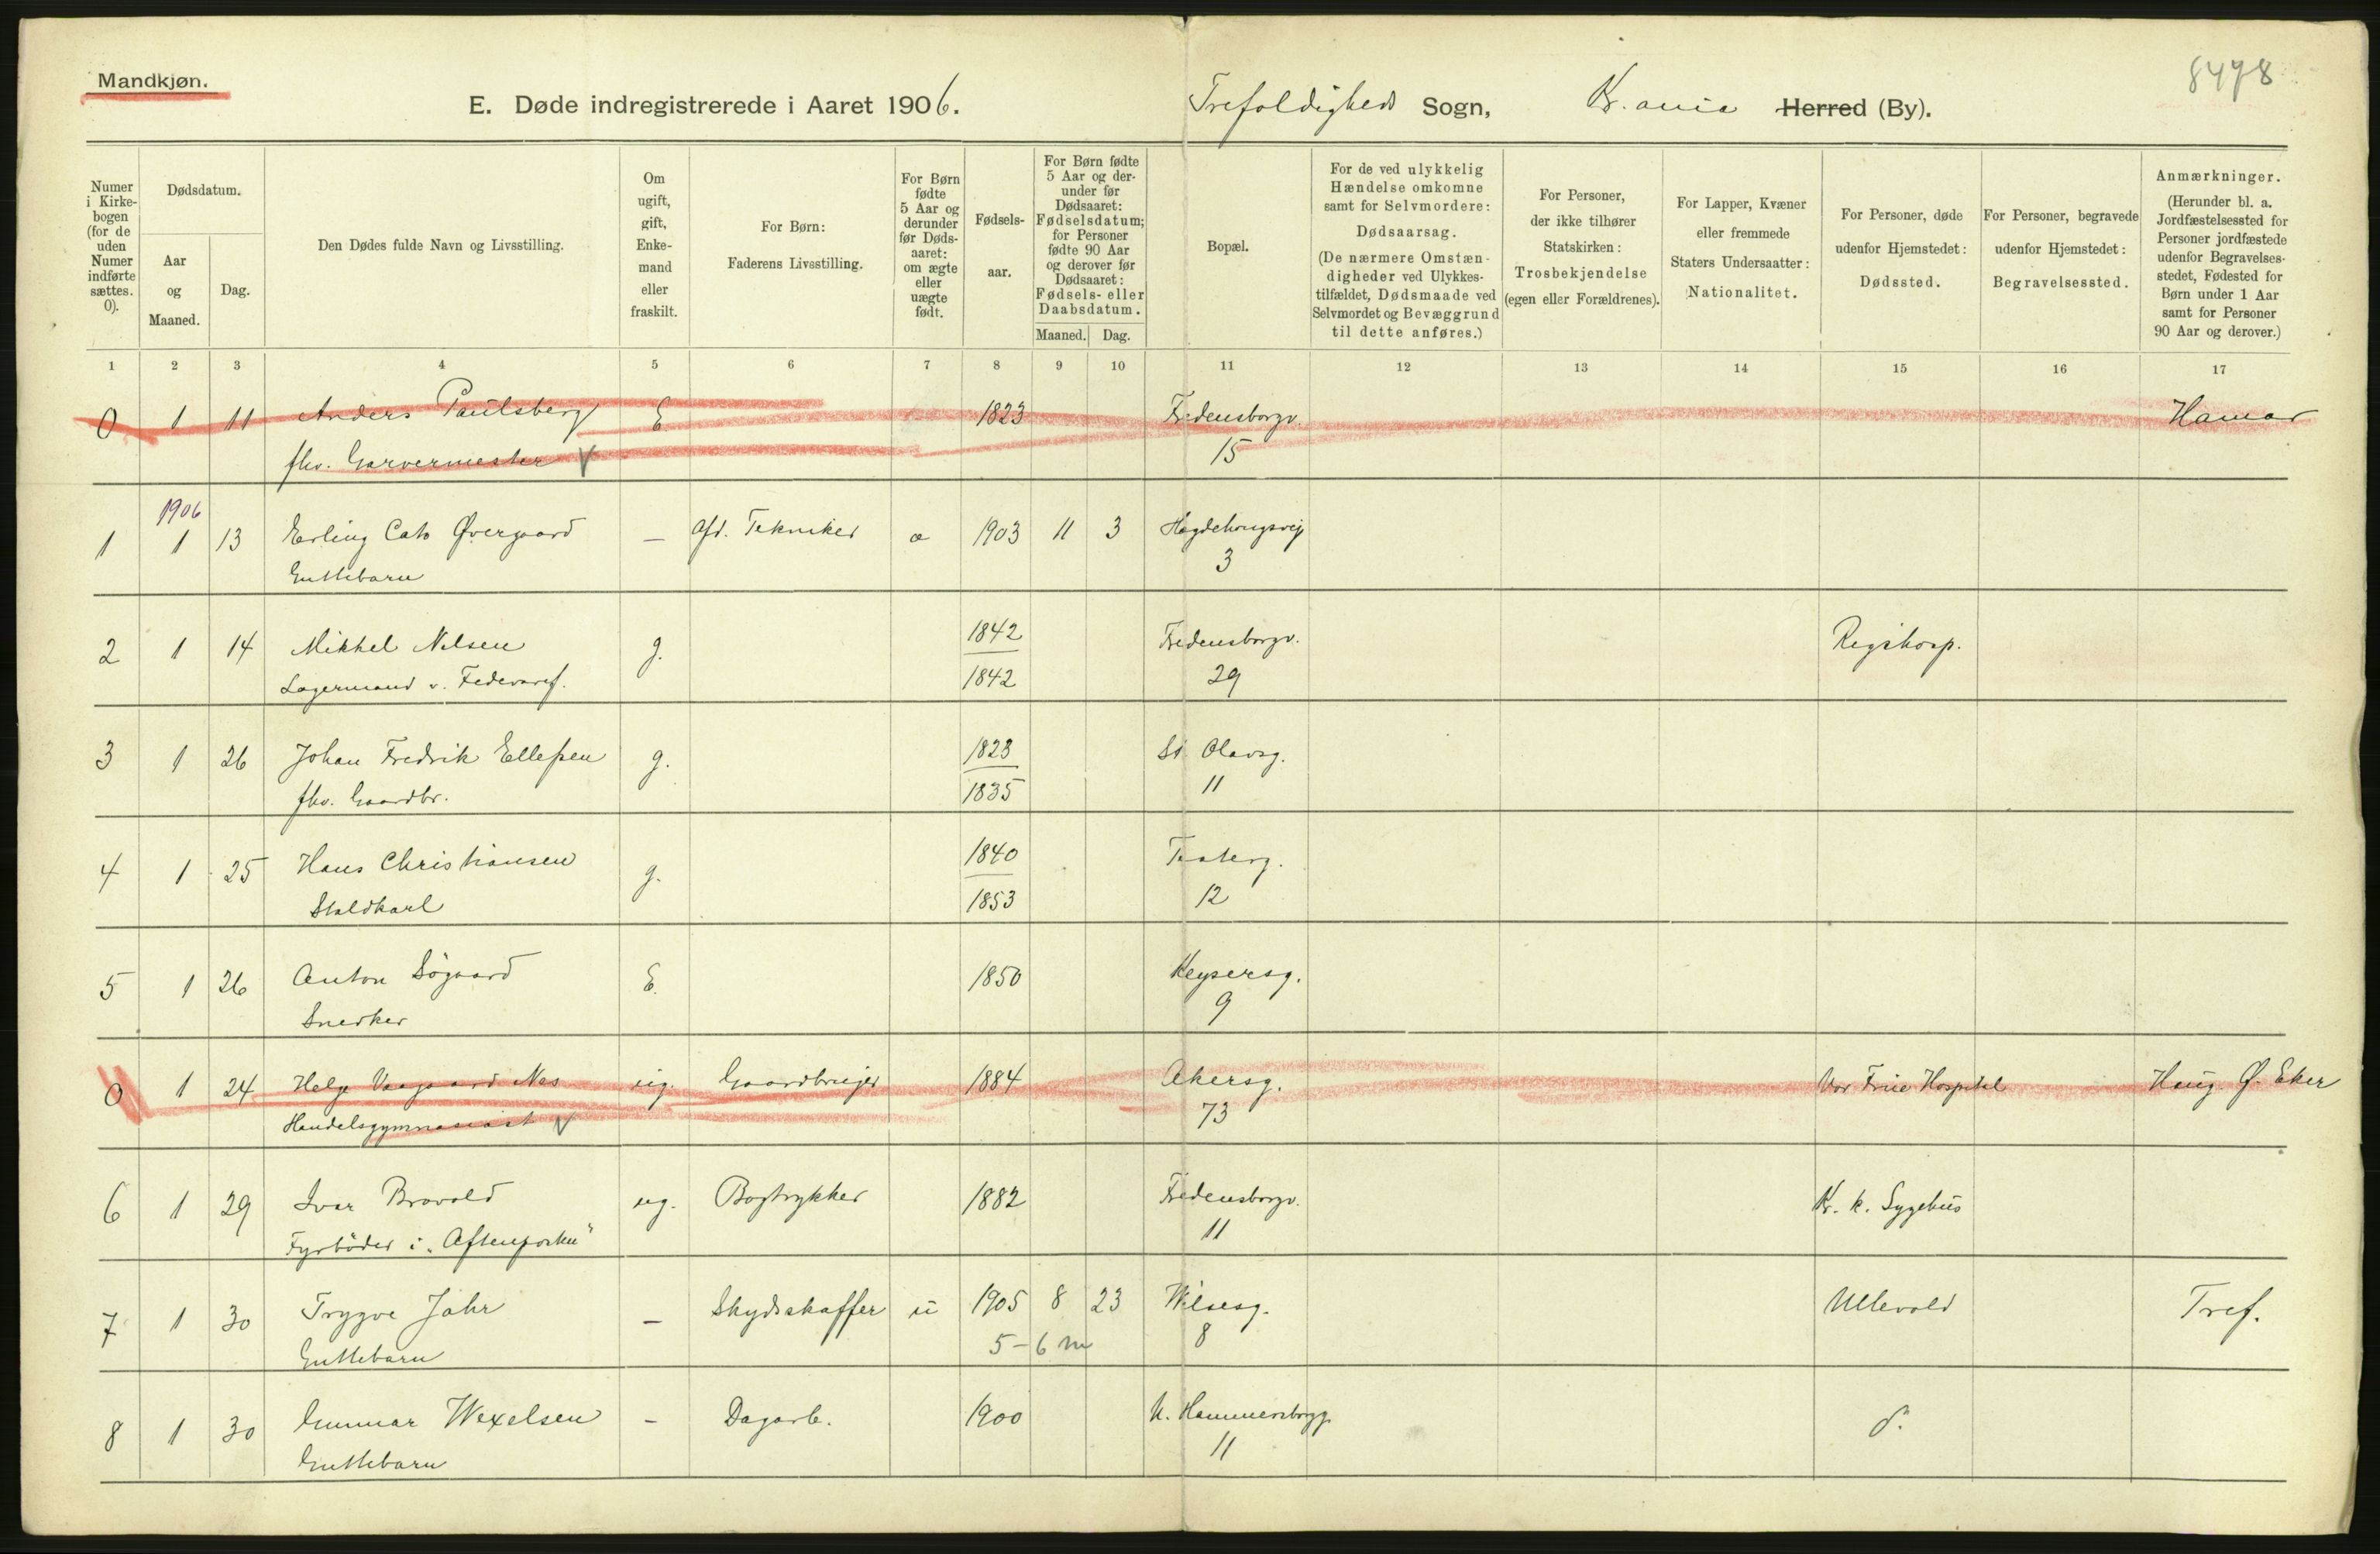 Mandkjøn.
8478
E. Døde indregistrerede i Aaret 1906. Trefoldigheds Sogn, Kr.ania Herred (By).
Numer i Kirkebogen (for de uden Numer indførte sættes. 0).
Dødsdatum.
Aar og Maaned.
Dag.
Den Dødes fulde Navn og Livsstilling.
Om ugift, gift, Enkemand eller fraskilt.
For Børn: Faderens Livsstilling.
For Børn fødte 5 Aar og derunder før Dødsaaret: om ægte eller uægte født.
Fødselsaar.
For Børn fødte 5 Aar og derunder før Dødsaaret: Fødselsdatum; for Personer fødte 90 Aar og derover før Dødsaaret: Fødsels- eller Daabsdatum.
Maaned. Dag.
Bopæl.
For de ved ulykkelig Hændelse omkomne samt for Selvmordere: Dødsaarsag. (De nærmere Omstændigheder ved Ulykkestilfældet, Dødsmaade ved Selvmordet og Bevæggrund til dette anføres.)
For Personer, der ikke tilhører Statskirken: Trosbekjendelse (egen eller Forældrenes).
For Lapper, Kvæner eller fremmede Staters Undersaatter: Nationalitet.
For Personer, døde udenfor Hjemstedet: Dødssted.
For Personer, begravede udenfor Hjemstedet: Begravelsessted.
Anmærkninger. (Herunder bl. a. Jordfæstelsessted for Personer jordfæstede udenfor Begravelsesstedet, Fødested for Børn under 1 Aar samt for Personer 90 Aar og derover.)
1 2 3 4 5 6 7 8 9 10 11 12 13 14 15 16 17
0 1 11 Anders Paulsberg E 1823 Fredensborgv. Hamar
fhv. Garvermester 15
1906
1 1 13 Erling Cato Øvergaard — Afd. Tekniker æ 1903 11 3
Guttebarn 3
2 1 14 Mikkel Nilsen g. 1842 Fredensborgv. Rigshosp.
Lagermand v. Federaref. 1842 29
3 1 26 Johan Fredrik Ellefsen g. 1823 St. Olavsg.
fhv. Gaardbr. 1835 11
4 1 25 Hans Christiansen g. 1840 Teaterg.
Staldkarl 1853 12
5 1 26 Anton Søgaard E. 1850 Keysersg.
Snedker 9
0 1 24 Helge Vaagaard Næs ug. Gaardbruger 1884 Akersg. Vor Frue Hospital Haug Ø. Eker
Handelsgymnasiast 73
6 1 29 Ivar Bravold ug. Bogtrykker 1882 Fredensborgv. Kr. k. Sygehus
Fyrbøder i "Aftenposten" 11
7 1 30 Trygve Jahr — Skydsskaffer u 1905 8 23 Wilsesg. Ullevold Tref.
Guttebarn 5-6 m 8
8 1 30 Gunnar Wexelsen - Dagarb. 1900 N. Hammersborgg. d.
Guttebarn 11